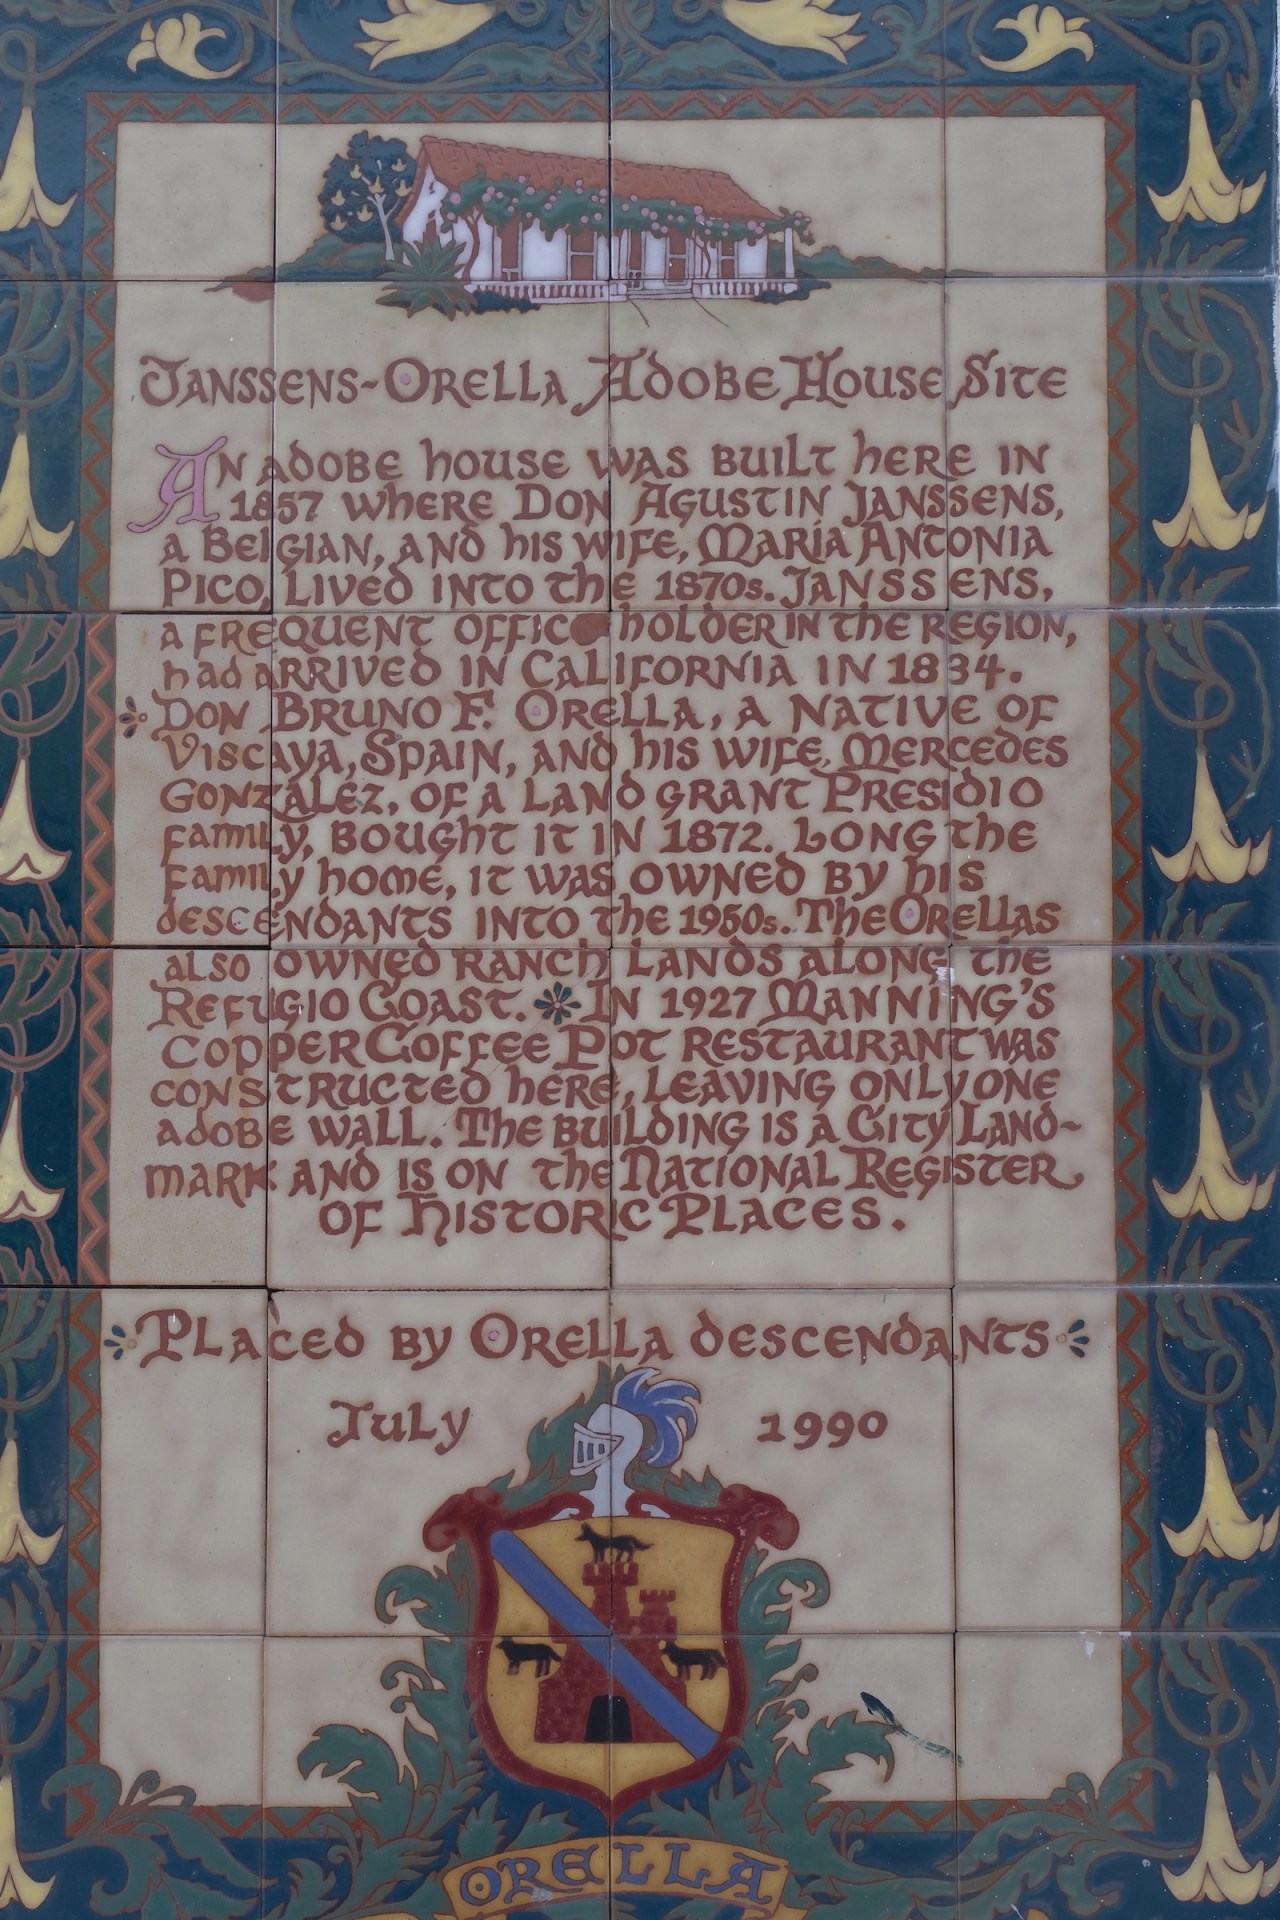 Janssens-Orella Adobe House Site
An adobe house was built here in
1857 where Don Agustin Janssens,
a Belgian, and his wife, María Antonia
Pico, lived into the 1870s. Janssens,
a frequent office holder in the region,
had arrived in California in 1834.
Don Bruno F. Orella, a native of
Viscaya, Spain, and his wife, Mercedes
Gonzalez, of a land grant Presidio
family, bought it in 1872. Long the
family home, it was owned by his
descendants into the 1950s. The Orellas
also owned ranch lands along the
Refugio Coast. In 1927 Manning's
Copper Coffee Pot Restaurant was
constructed here, leaving only one
adobe wall. The building is a City Land-
mark and is on the National Register
of Historic Places.
Placed by Orella descendants
July 1990
ORELLA